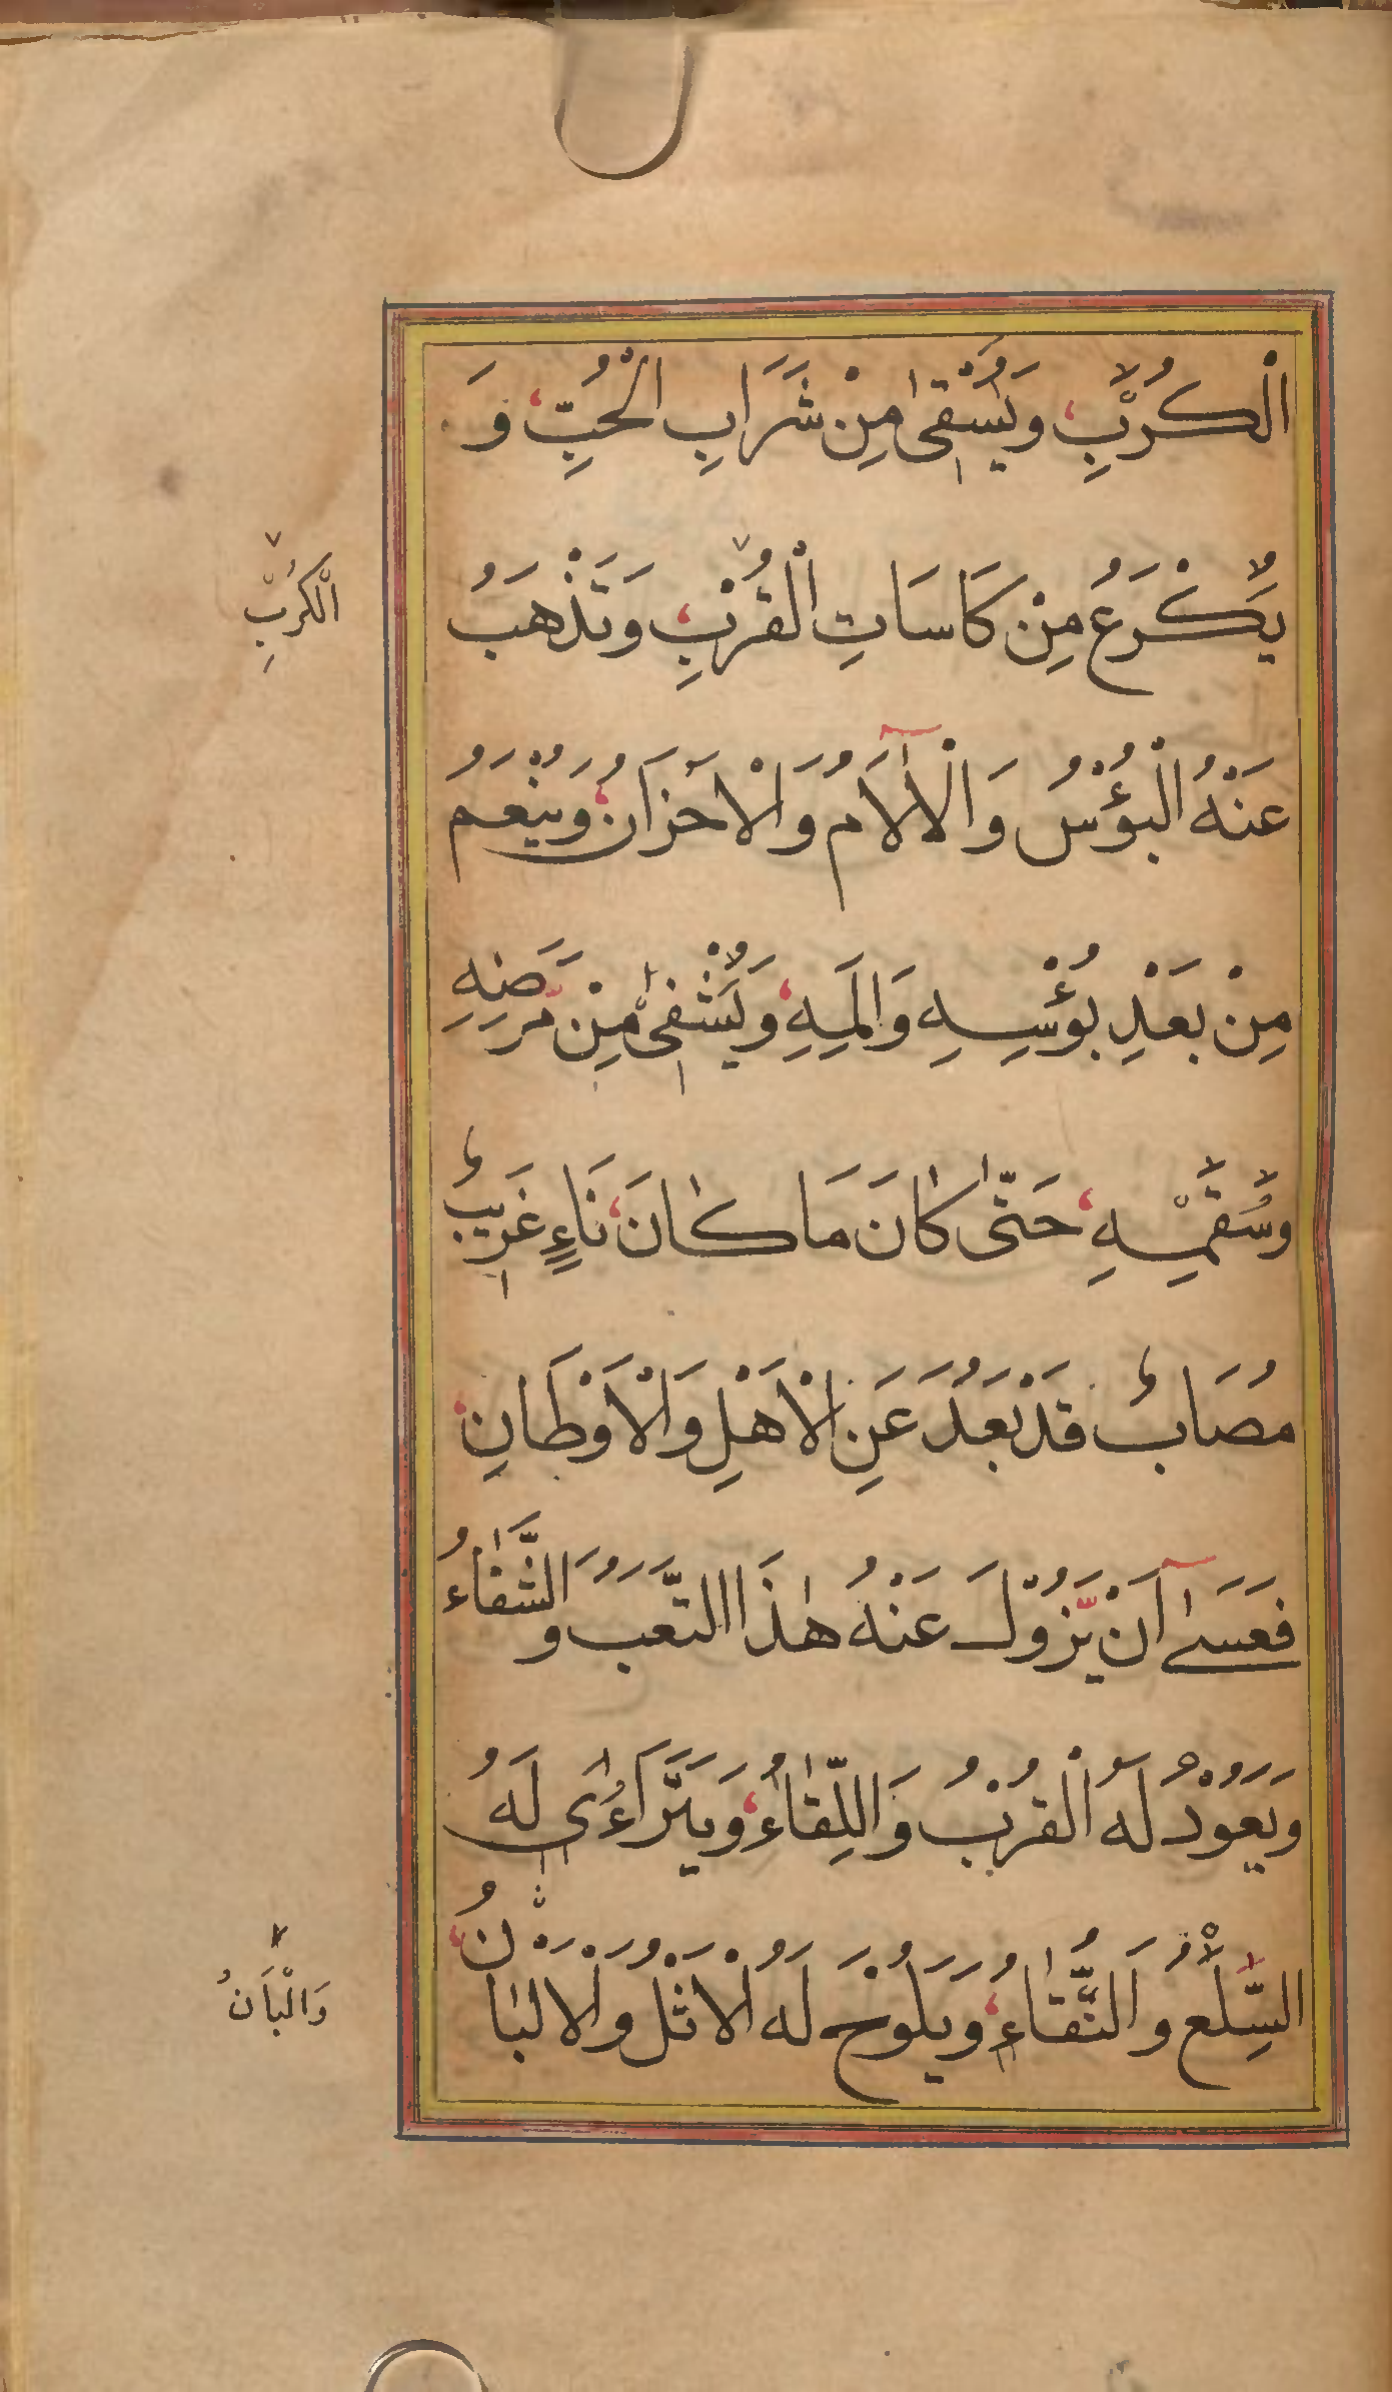 الْكُرَّبِ وَيُسْقىٰ مِنْ شَرَابِ الْحُبِّ وَ
يَّكْرَعُ مِنْ كَاسَاتِ الْقُرْبِ وَتَذْهَبُ
الْكُرَبِ
عَنْهُ الْبُؤْسُ وَالْاٰلَامُ وَالْاَحْزَانُ وَيَنْعَمُ
مِنْ بَعْدِ بُؤْسِهِ وَاَلَمِهِ وَيُشْفىٰ مِنْ مَرَضِهِ
وَسُقْمِهِ حَتّٰى كَانَ مَا كَانَ نَاءٍ غَرِيبٌ
مُصَابٌ قَدْ بَعُدَ عَنِ الْاَهْلِ وَالْاَوْطَانِ
فَعَسَىٰ اَنْ يَّزُوْلَ عَنْهُ هٰذَا التَّعَبُ وَالشَّقَاءُ
وَيَعُوْدُ لَهُ الْقُرْبُ وَاللِّقَاءُ وَيَتَرَاءٰى لَهُ
السِّلْعُ وَالنَّقَاءُ وَيَلُوْحَ لَهُ الْاَثْلُ وَالْالْبَانُ
وَالْبَانُ